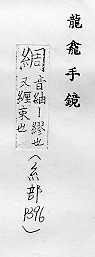 龍龕手鏡
綢音紬丨繆也
又纏束也
(糸部P396)